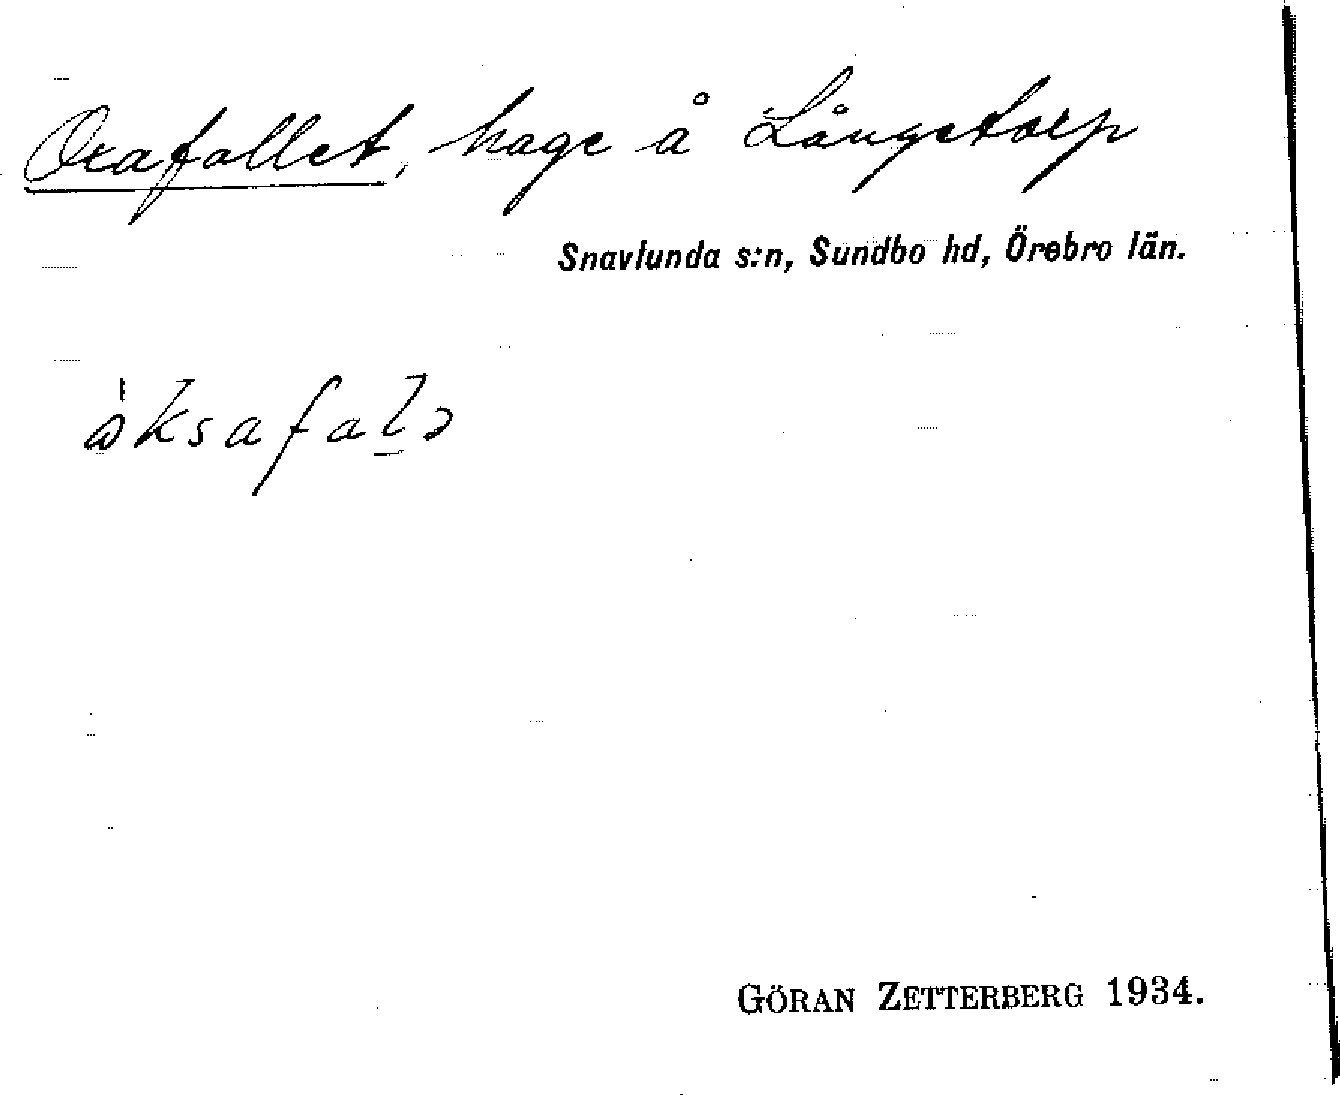 Oxafallet, hage å Långetorp
Snavlunda s:n, Sundbo hd, Örebro län.
GÖRAN ZETTERBERG 1934.